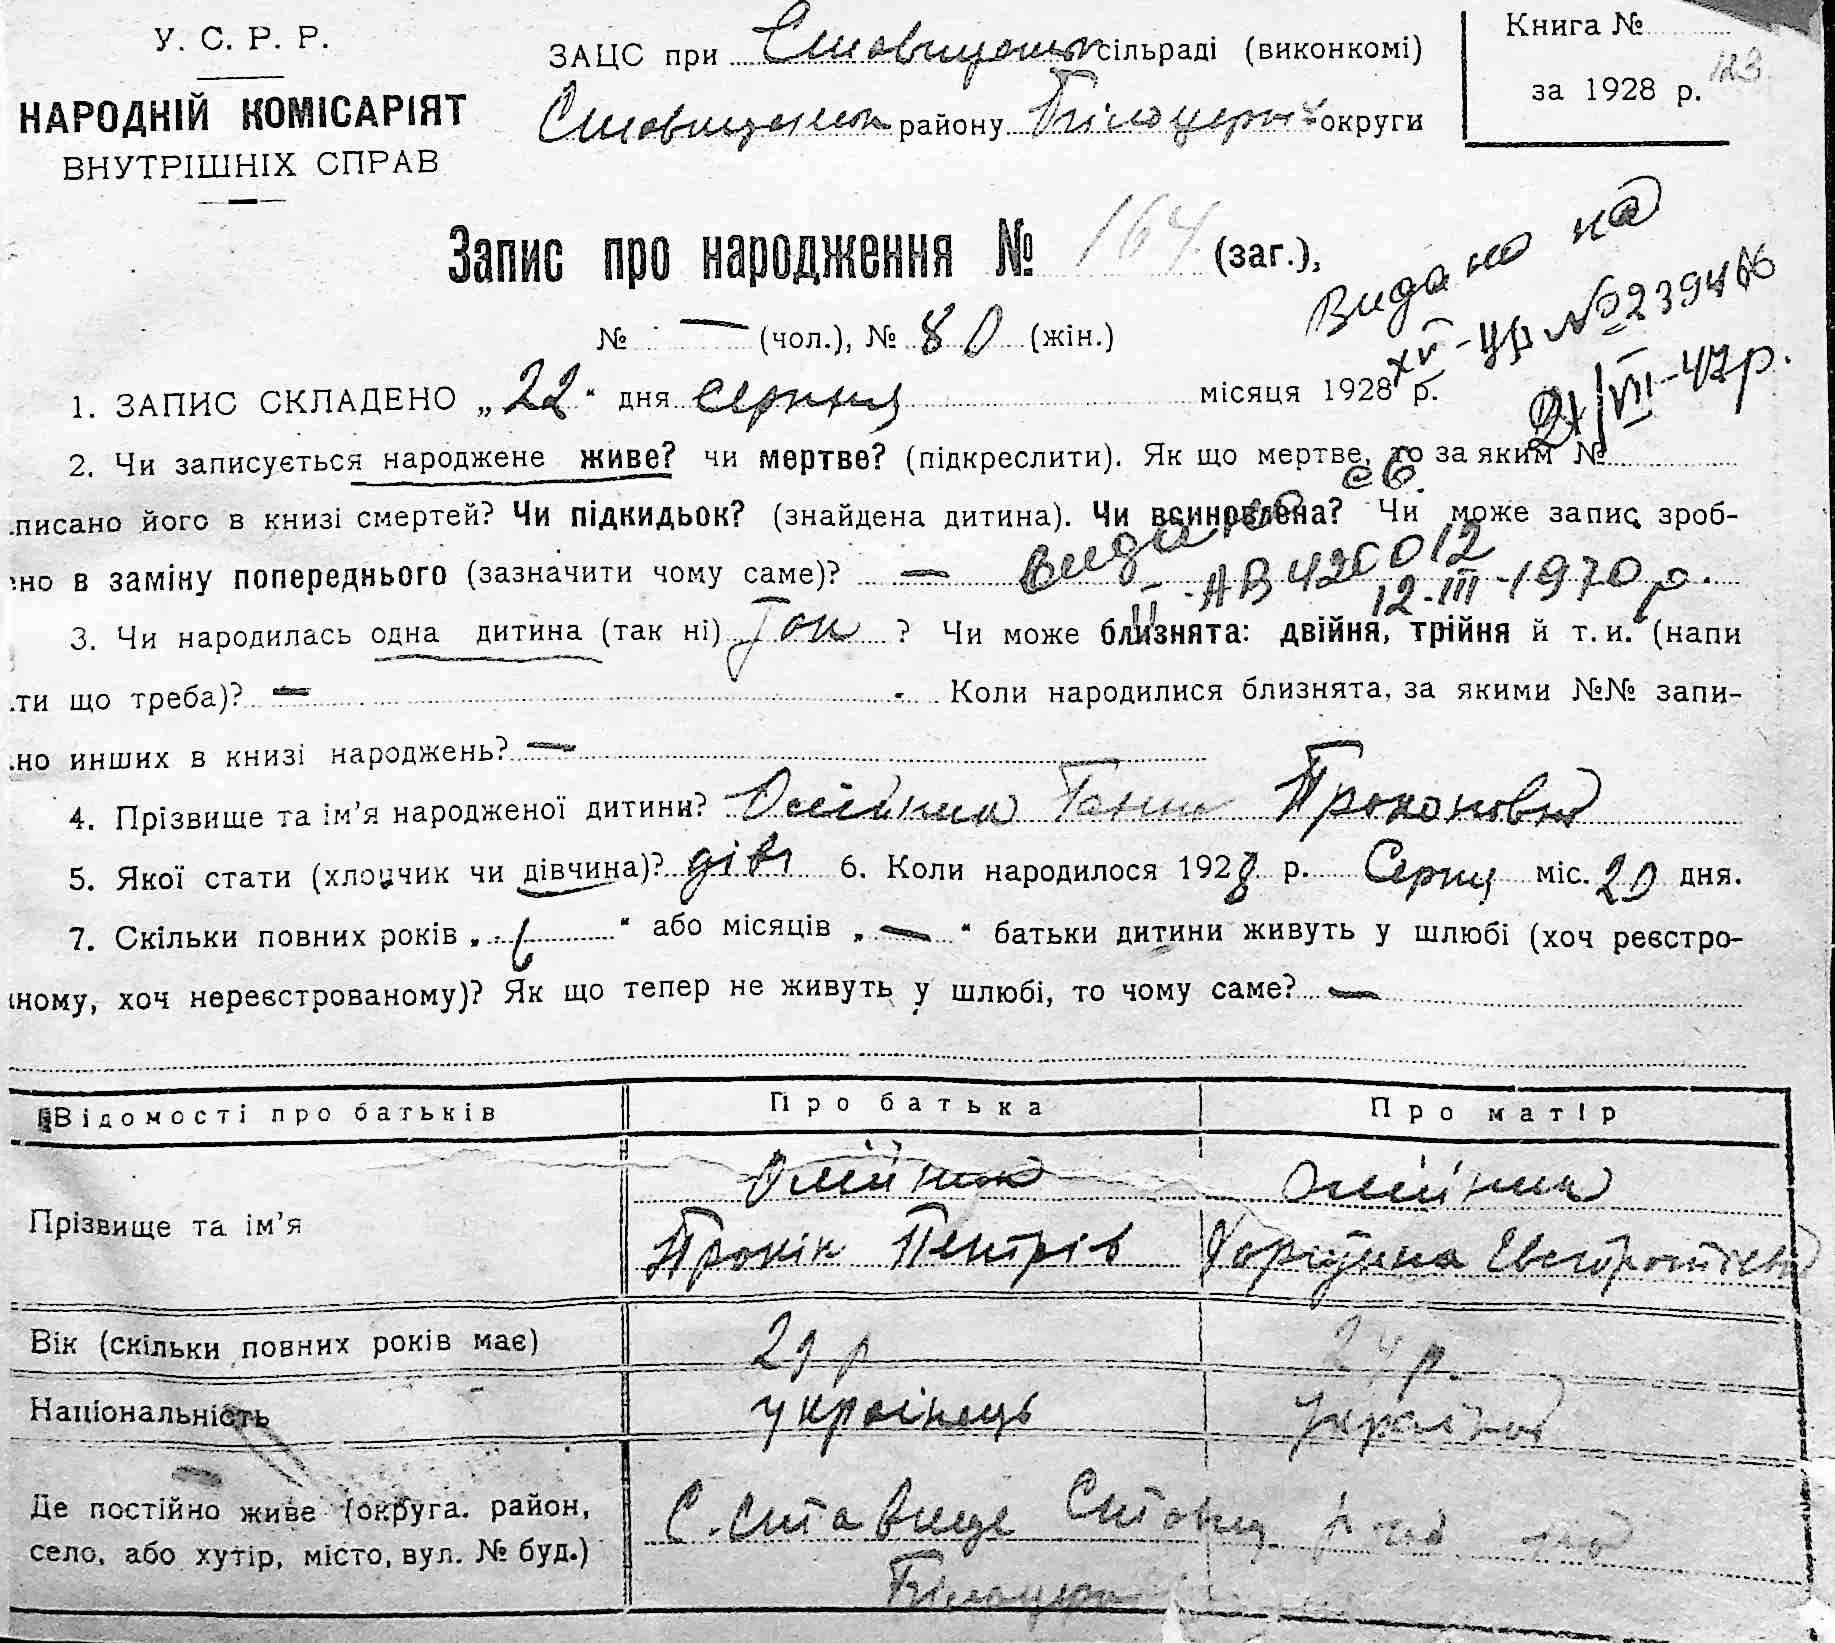 У. С. Р. Р.
НАРОДНІЙ КОМІСАРІЯТ
ВНУТРІШНІХ СПРАВ
ЗАЦС при Ставищанськ сільраді (виконкомі)
Ставищанськ району Білоцерк округи
Книга №
за 1928 р.
123
Запис про народження № 164 (заг.),
№ — (чол.), № 80 (жін.)
Видано на
XV-ЦР № 239466
21/VII-47р.
1. ЗАПИС СКЛАДЕНО „22" дня серпня місяця 1928 р.
2. Чи записується народжене живе? чи мертве? (підкреслити). Як що мертве, то за яким №
.писано його в книзі смертей? Чи підкидьок? (знайдена дитина). Чи всиновлена? Чи може запис зроб-
но в заміну попереднього (зазначити чому саме)? —
видано св.
II-АВ 420012
12-III-1970 р.
3. Чи народилась одна дитина (так ні) Так ? Чи може близнята: двійня, трійня й т. и. (напи
.ти що треба)? — Коли народилися близнята, за якими №№ запи-
.но инших в книзі народжень? —
4. Прізвище та ім'я народженої дитини? Олійник Ганна Прокоповна
5. Якої стати (хлопчик чи дівчина)? дівч 6. Коли народилося 1928 р. Серпн міс. 20 дня.
7. Скільки повних років „ 6 " або місяців „ — " батьки дитини живуть у шлюбі (хоч реєстро-
ному, хоч нереєстрованому)? Як що тепер не живуть у шлюбі, то чому саме? —
Відомості про батьків Про батька Про матір
Прізвище та ім'я
Олійник Олійник
Прокіп Петрів Хортина
Вік (скільки повних років має) 29 р 24 р.
Національність українець Українка
Де постійно живе (округа. район,
село, або хутір, місто, вул. № буд.)
С. Ставище Ставищ
Білоцерк